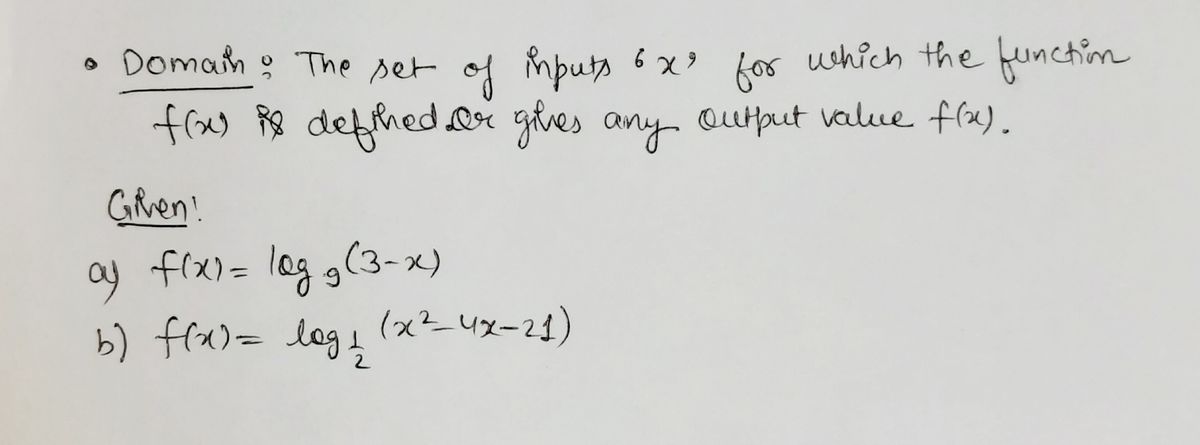 • Domain : The set of inputs ‘x’ for which the function
f(x) is defined or gives any output value f(x).
Given:
a) f(x) = log₉(3-x)
b) f(x) = log_{1/2} (x²-4x-21)